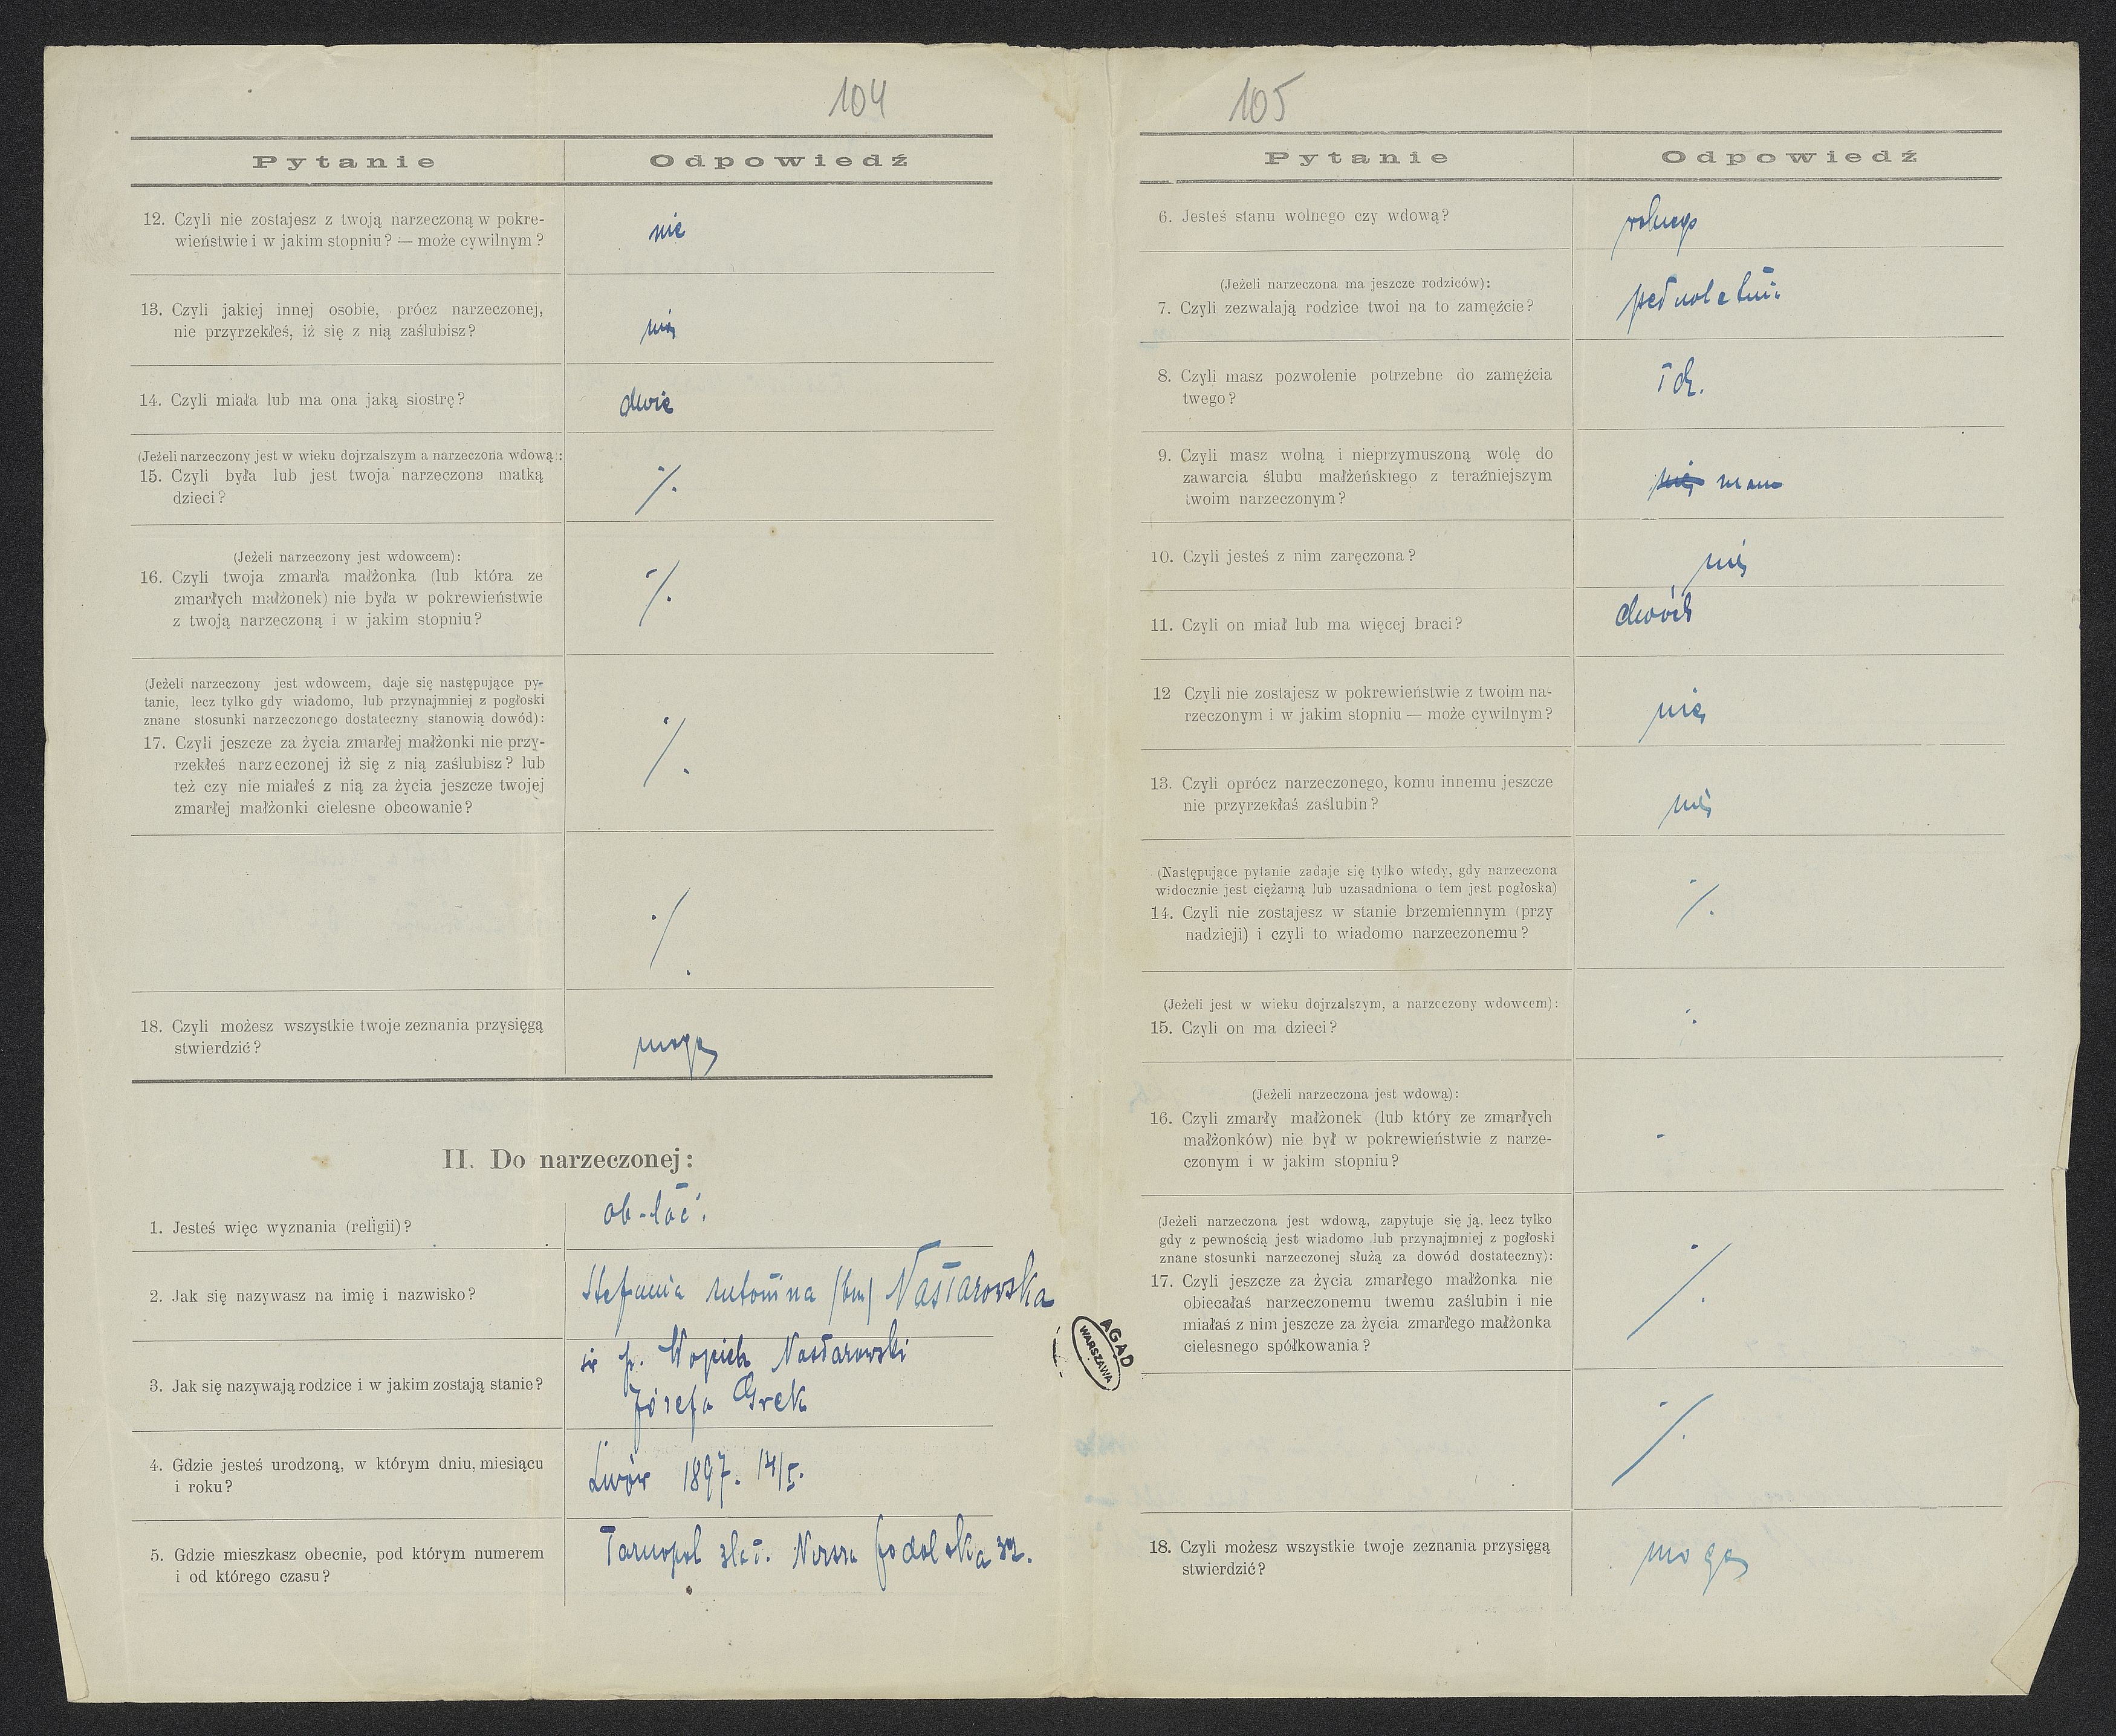 104
Pytanie
Odpowiedź
12. Czyli nie zostajesz z twoją narzeczoną w pokre-
wieństwie i w jakim stopniu? — może cywilnym?
nie
13. Czyli jakiej innej osobie, prócz narzeczonej,
nie przyrzekłeś, iż się z nią zaślubisz?
nie
14. Czyli miała lub ma ona jaką siostrę?
dwie
(Jeżeli narzeczony jest w wieku dojrzalszym a narzeczona wdową):
15. Czyli była lub jest twoja narzeczona matką
dzieci?
·/.
(Jeżeli narzeczony jest wdowcem):
16. Czyli twoja zmarła małżonka (lub która ze
zmarłych małżonek) nie była w pokrewieństwie
z twoją narzeczoną i w jakim stopniu?
·/.
(Jeżeli narzeczony jest wdowcem, daje się następujące py-
tanie, lecz tylko gdy wiadomo, lub przynajmniej z pogłoski
znane stosunki narzeczonego dostateczny stanowią dowód):
17. Czyli jeszcze za życia zmarłej małżonki nie przy-
rzekłeś narzeczonej iż się z nią zaślubisz? lub
też czy nie miałeś z nią za życia jeszcze twojej
zmarłej małżonki cielesne obcowanie?
·/.
·/.
18. Czyli możesz wszystkie twoje zeznania przysięgą
stwierdzić?
mogę
II. Do narzeczonej:
1. Jesteś więc wyznania (religii)?
ob-łać.
2. Jak się nazywasz na imię i nazwisko?
Stefania Antonina Nastarowska
3. Jak się nazywają rodzice i w jakim zostają stanie?
śp. Wojciech Nastarowski
Józefa Grek
4. Gdzie jesteś urodzoną, w którym dniu, miesiącu
i roku?
Lwów 1897. 14/5.
5. Gdzie mieszkasz obecnie, pod którym numerem
i od którego czasu?
Tarnopol Podolska 32.
AGAD
WARSZAWA
105
Pytanie
Odpowiedź
6. Jesteś stanu wolnego czy wdową?
wolnego
(Jeżeli narzeczona ma jeszcze rodziców):
7. Czyli zezwalają rodzice twoi na to zamężcie?
pełnoletnia
8. Czyli masz pozwolenie potrzebne do zamężcia
twego?
9. Czyli masz wolną i nieprzymuszoną wolę do
zawarcia ślubu małżeńskiego z teraźniejszym
twoim narzeczonym?
nie mam
10. Czyli jesteś z nim zaręczona?
nie
11. Czyli on miał lub ma więcej braci?
dwóch
12 Czyli nie zostajesz w pokrewieństwie z twoim na-
rzeczonym i w jakim stopniu — może cywilnym?
nie
13. Czyli oprócz narzeczonego, komu innemu jeszcze
nie przyrzekłaś zaślubin?
nie
(Następujące pytanie zadaje się tylko wtedy, gdy narzeczona
widocznie jest ciężarną lub uzasadniona o tem jest pogłoska)
14. Czyli nie zostajesz w stanie brzemiennym (przy
nadzieji) i czyli to wiadomo narzeczonemu?
·/.
(Jeżeli jest w wieku dojrzalszym, a narzeczony wdowcem):
15. Czyli on ma dzieci?
·/.
(Jeżeli narzeczona jest wdową):
16. Czyli zmarły małżonek (lub który ze zmarłych
małżonków) nie był w pokrewieństwie z narze-
czonym i w jakim stopniu?
-
(Jeżeli narzeczona jest wdową, zapytuje się ją, lecz tylko
gdy z pewnością jest wiadomo lub przynajmniej z pogłoski
znane stosunki narzeczonej służą za dowód dostateczny):
17. Czyli jeszcze za życia zmarłego małżonka nie
obiecałaś narzeczonemu twemu zaślubin i nie
miałaś z nim jeszcze za życia zmarłego małżonka
cielesnego spółkowania?
·/.
·/.
18. Czyli możesz wszystkie twoje zeznania przysięgą
stwierdzić?
mogę